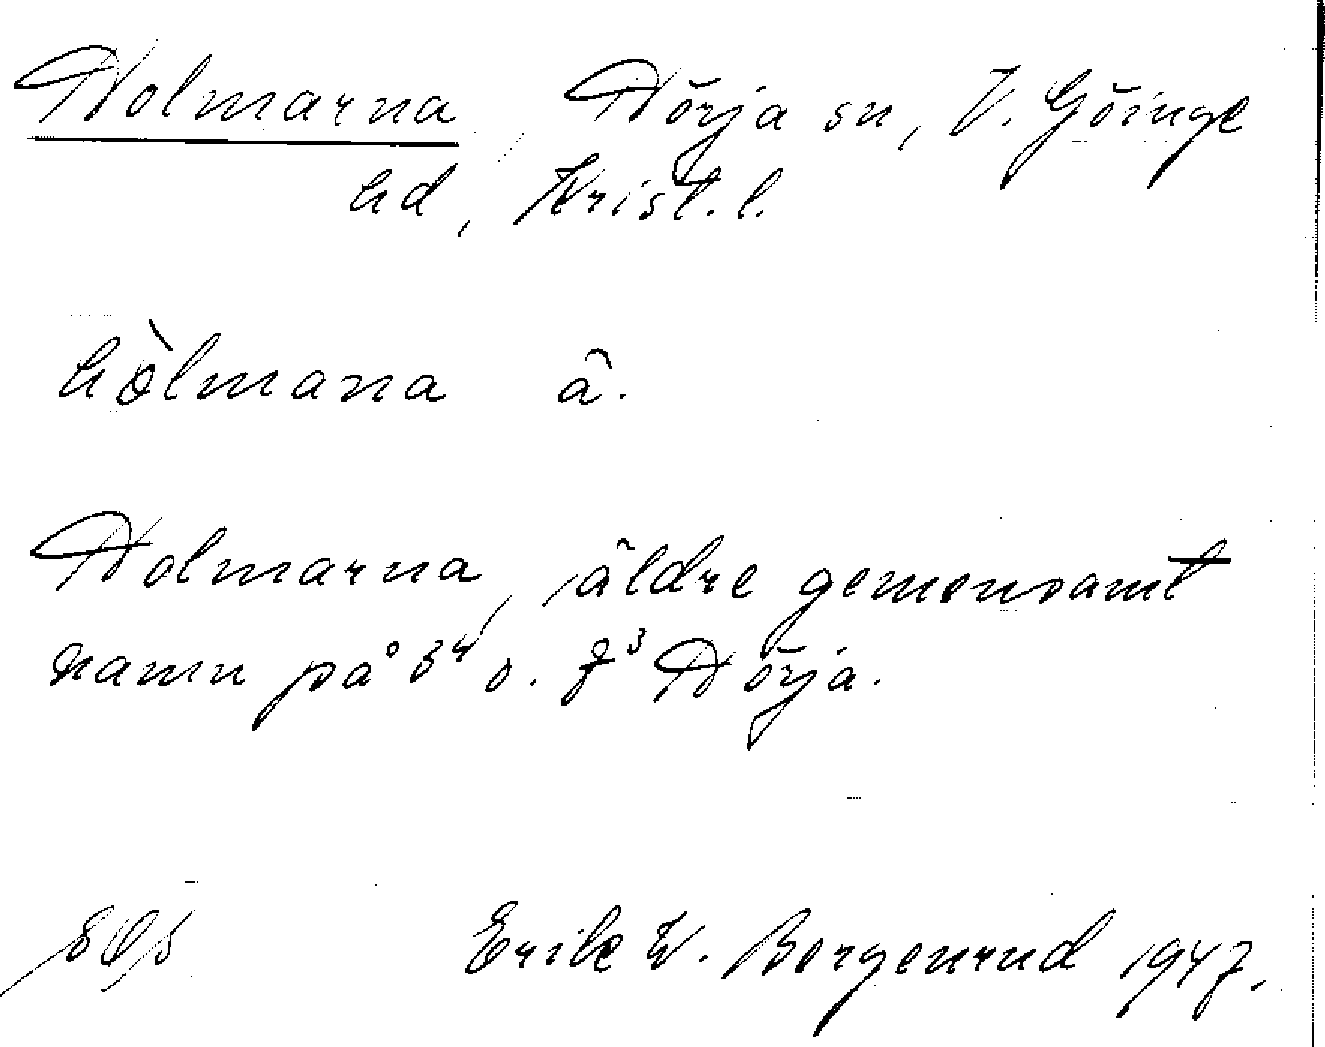 Holmarna, Hörja sn, V. Göinge
hd, Krist. l.
hòlmana â.
Holmarna, äldre gemensamt
namn på 3⁴ o. 7³ Hörja.
Erik W. Borgenrud 1947.